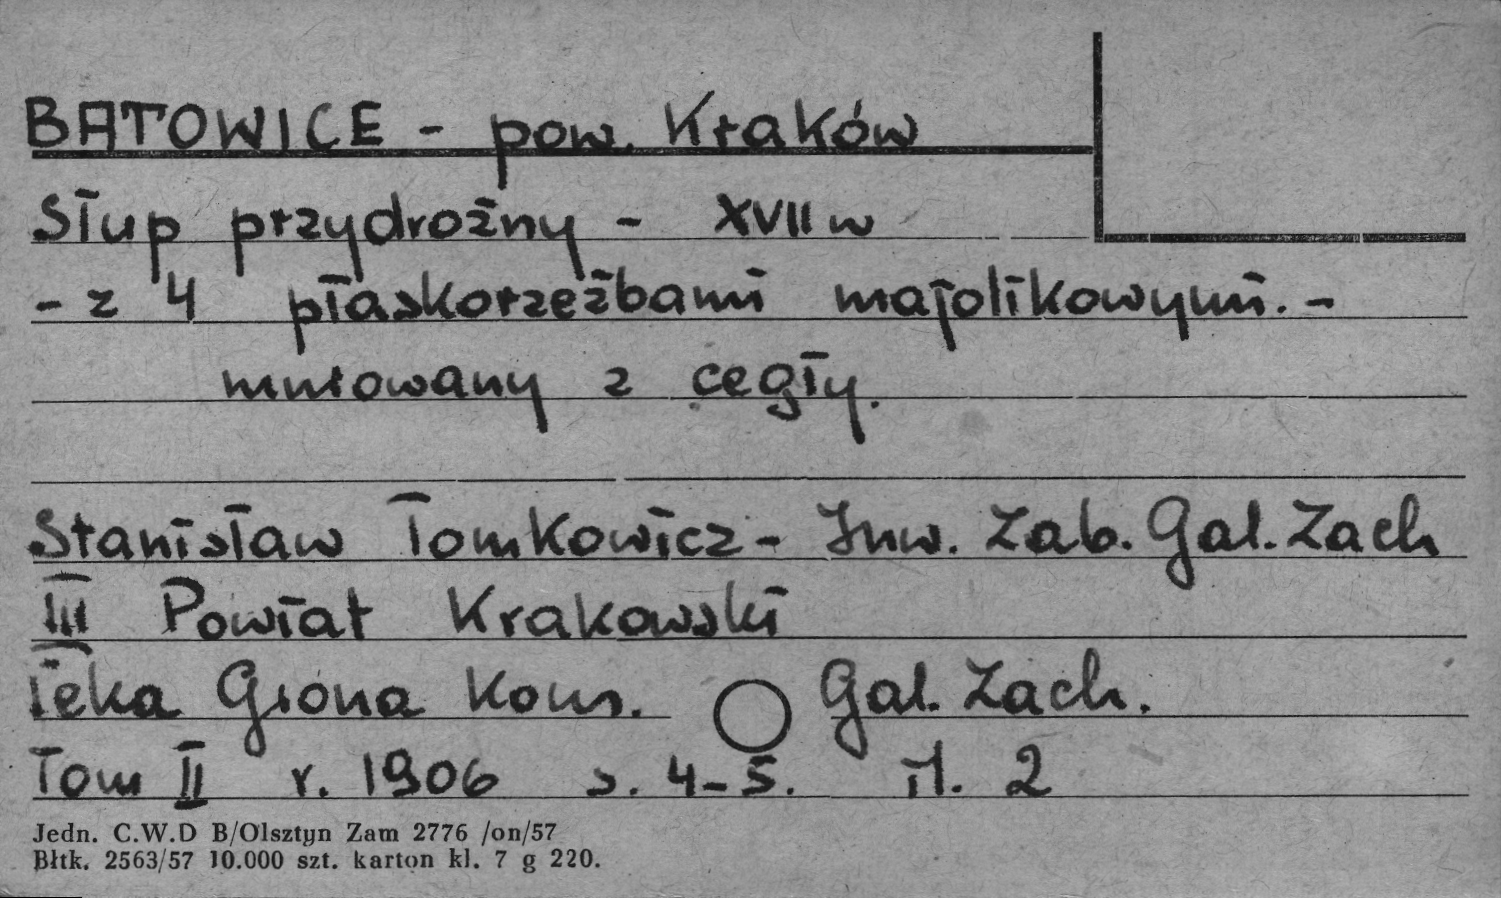 BATOWICE - pow. Kraków
Słup przydrożny - XVII w
- z 4 płaskorzeźbami majolikowymi. -
murowany z cegły.
Stanisław Tomkowicz - Inw. Zab. Gal. Zach
III Powiat Krakowski
Teka Grona Kons. Gal. Zach.
Tom II r. 1906 s. 4-5. il. 2
Jedn. C.W.D B/Olsztyn Zam 2776 /on/57
Błtk. 2563/57 10.000 szt. karton kl. 7 g 220.